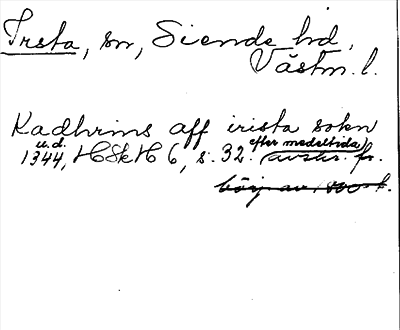 Irsta, sn, Siende hd,
Västm. l.
Kadhrins aff irista sokn
u.d.
1344, HSkH 6, s. 32. efter medeltida avskr. fr.
börj av 1800-t.